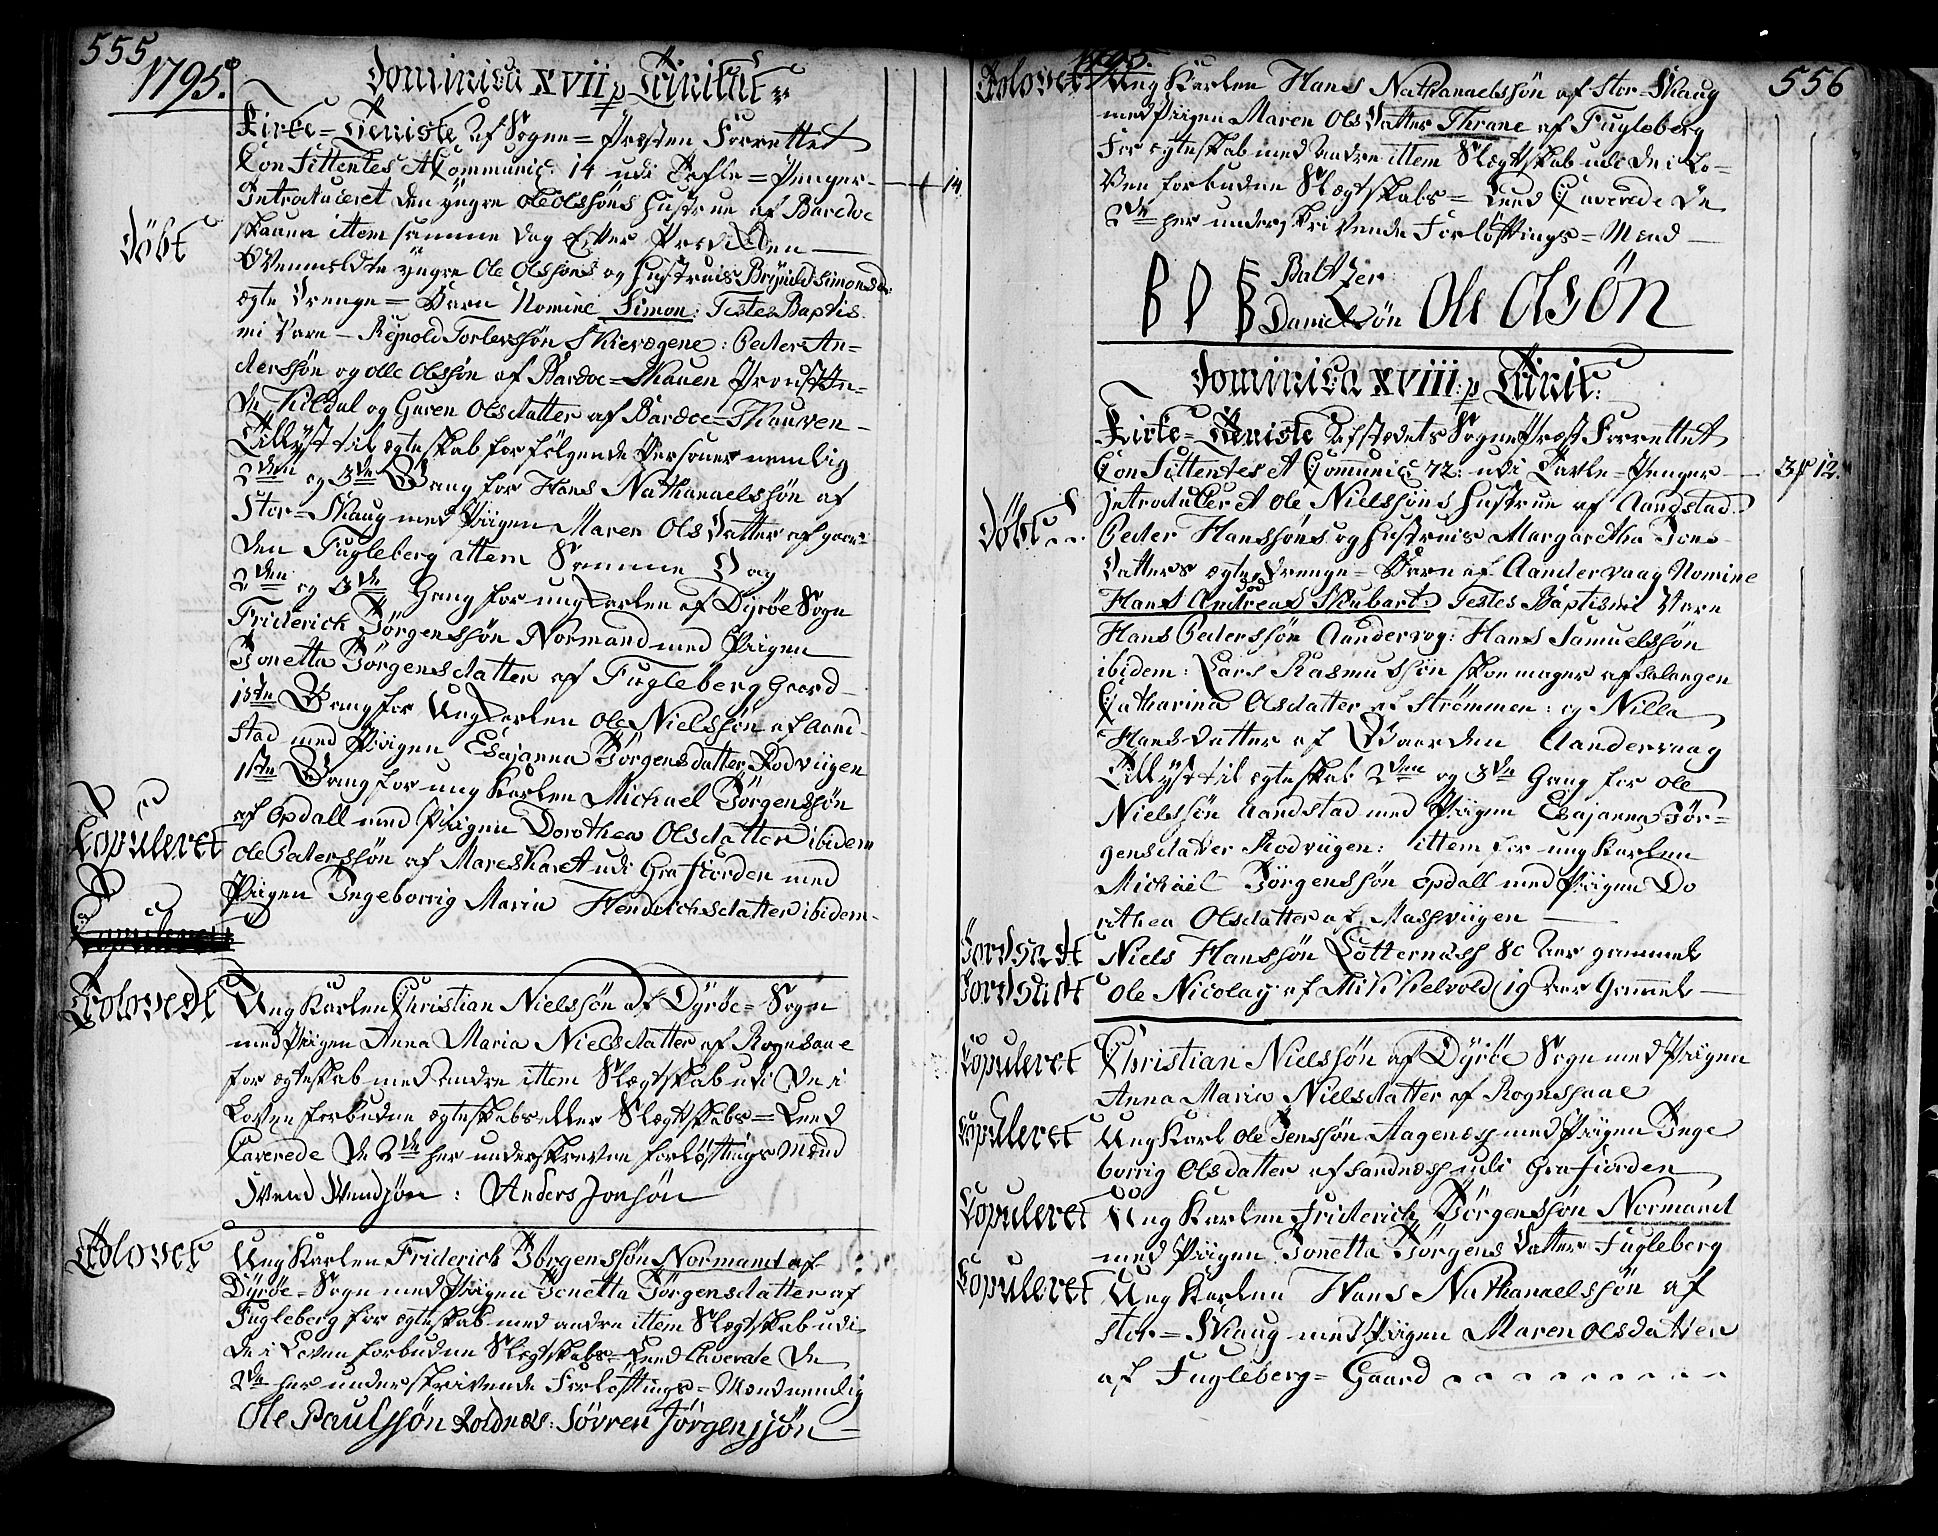 555
1795.
Dominica XVII p Trinitat
Kirke=Tieniste af Sogne=Præsten Forrettet
Confitentes & Communic: 14 udi Tafle=Penger — 14
Introduceret den yngre Ole Olssøns Hustrue af Bardoe
skauen ittem samme Dag Efter Prediken —
Døbt
Ovenmeldte yngre Ole Olssøns og Hustruis Brynild Simonsd:
ægte Drenge=Barn Nomine Simon: Testes Baptis
mi Vare — Reynold Torlerssøn Skievægene: Peder An=
derssøn og Olle Olssøn af Bardoe=Skauen
de Kildal og Guren Olsdatter af Bardoe=Skauven —
Tillyst til ægteskab for følgende Personer nemlig
2den og 3de Gang for Hans Nathanaelssøn af
Stor=Skaug med Piigen Maren Ols Datter af gaar=
den Fugleberg ittem Samme Dag
2den og 3de Gang for ung Karlen af Dyrøe Sogn
Friderich Jørgenssøn Normand med Piigen
Jonetta Jørgensdatter af Fugleberg Gaard —
1ste Gang for Ung Karlen Ole Nielssøn af Aand
stad med Piigen Esajanna Jørgensdatter Rodviigen
1ste Gang for ung Karlen Michael Jørgenssøn
af Opdall med Piigen Dorothea Olsdatter ibidem
Copuleret
Ole Pederssøn af Mareskaret udi Grafiorden med
Piigen Ingeborrig Maria Hendrichsdatter ibidem —
Copuleret
Trolovedt
Ung Karlen Christian Nielssøn af Dyrøe=Sogn
med Piigen Anna Maria Nielsdatter af Rognsaae
for ægteskab med andre ittem Slægtskab udi De i
Loven forbudne ægteskabs eller Slægtskabs=Leed
Caverede De 2de her underskreven forløftings Mænd
Svend Svendsøn: Anders Jonsøn
Trolovet
Ung Karlen Friderich Jørgenssøn Normand af
Dyrøe=Sogn med Piigen Jonetta Jørgensdatter af
Fugleberg for ægteskab med andre ittem Slægtskab udi
De i Loven forbudne Slægtskabs=Leed Caverede De
2de her underskrivende Forløftings=Mænd nemlig
Ole Paulssøn Roldnes: Søvren Jørgenssøn=
1795.
556
Trolovet
Ung Karlen Hans Nathanaelssøn af Stor=Skaug
med Piigen Maren Ols Datter Thrane af Fugleberg
For ægteskab med andre ittem Slægtskab udi De i Lo=
ven forbudne Slægtskabs=Leed Caverede De
2de her underskrivende Forløftings=Mænd —
Baltzer
Danielsøn Ole Olsøn
Dominica XVIII: p Trinit:
Kirke=Tieniste af stædets Sogne Præst Forrettet
Confitentes & Comunic: 72: udi Tavle=Penger — 3 12
Introduceret Ole Nielssøns Hustrue af Aandstad
Døbt
Peder Hanssøns og Hustruis Margaretha Jens
Datters ægte Drenge=Barn af Aandervaag Nomine
død
Hans Andreas Skubart: Testes Baptismi Vare
Hans Pederssøn Aandervog: Hans Samuelssøn
ibidem: Lars Rasmussøn skoemager af Salangen
Catharina Olsdatter af Strømmen: og Nilla
Hans datter af Gaarden Aandervaag
Tillyst til ægteskab 2den og 3de Gang for Ole
Nielssøn Aandstad med Piigen Esajanna Jør=
gensdatter Rodviigen: ittem for ung Karlen
Michael Jørgenssøn Opdall med Piigen Do
rthea Olsdatter af Massviigen —
Jordsadt
Niels Hanssøn Lotternæss 80 Aar gammel
Jordsadt
Ole Nicolay af Mikkelvold 19 Aar Gammel —
Copuleret
Christian Nielssøn af Dyrøe Sogn med Piigen
Anna Maria Nielsdatter af Rognssaae
Copuleret
Ung Karl Ole Jenssøn Aageness med Piigen Inge
borrig Olsdatter af Sandness udi Grafiorden
Copuleret
Ung Karlen Friderich Jørgenssøn Normand
med Piigen Jonetta Jørgens Datter Fugleberg
Copuleret
Ung Karlen Hans Nathanaelssøn af
Stor=Skaug med Piigen Maren Olsdatter
af Fugleberg=Gaard